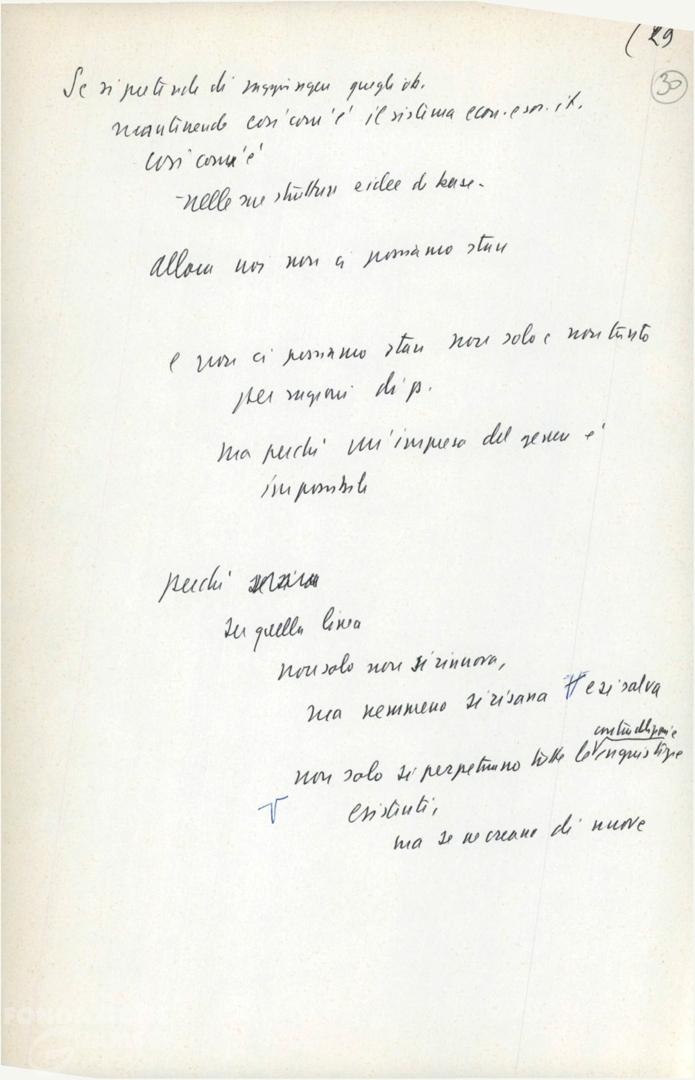 (29
30
Se si pretende di raggiungere quegli ob.
mantenendo così com'è il sistema econ. e soc. it.
così com'è
- nelle sue strutture e idee di base -
allora noi non ci possiamo stare
e non ci possiamo stare non solo e non tanto
per ragioni di p.
ma perché un'impresa del genere è
impossibile
perché
su quella linea
non solo non si rinnova,
ma nemmeno si risana e si salva
contraddizioni e
non solo si perpetuano tutte le ingiustizie
esistenti,
ma se ne creano di nuove